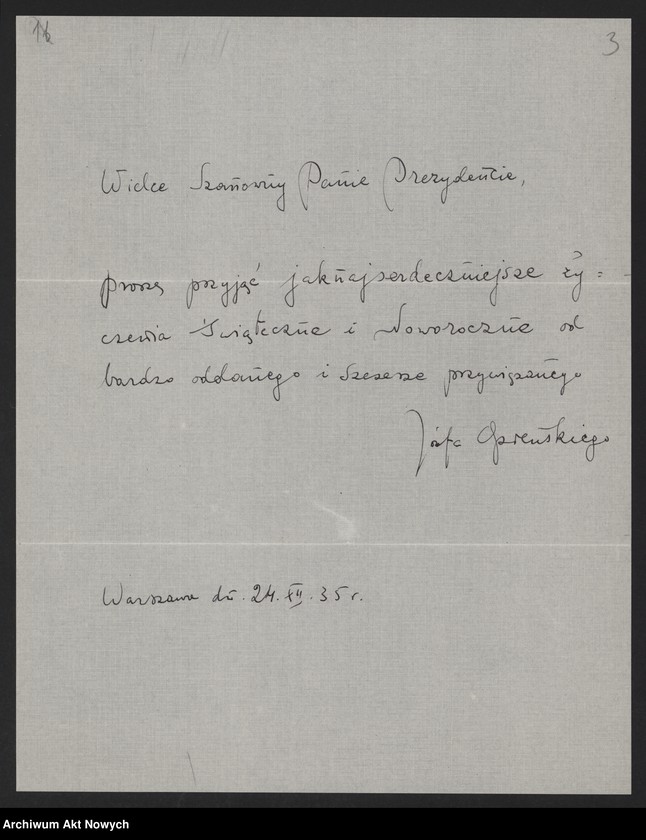 16
3
Wielce Szanowny Panie Prezydencie,
proszę przyjąć jaknajserdeczniejsze ży=
czenia Świąteczne i Noworoczne od
bardzo oddanego i szczerze przywiązanego
Józefa Opieńskiego
Warszawa dn. 24.XII.35 r.
Archiwum Akt Nowych